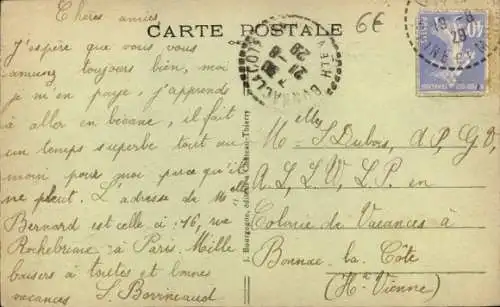 Chères amies
CARTE POSTALE
6€
J'espère que vous vous
amusez toujours bien, moi
je m'en paye, j'apprends
à aller en bécane, il fait
un temps superbe tout au
moins pour moi parce qu'il
ne pleut. L'adresse de Melle
Bernard est celle ci : 16, rue
Rochebrune à Paris. Mille
baisers à toutes et bonnes
vacances S. Borrineaud
J. Bourgogne, édition Château-Thierry
HTE VIENNE
7 30
21 - 8
29
40
Melles S. Dubois, A, P, G, D,
A, L, L, W, L, P. en
Colonie de Vacances à
Bonnac la Côte
(Hte Vienne)